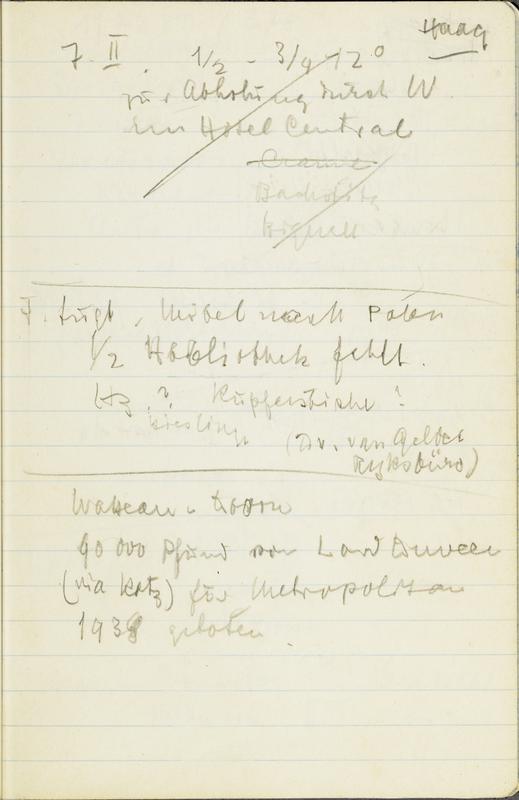 Haag
7. II. 1/2 - 3/4 12°
zur Abholung durch W
im Hotel Central
Cranne
Bachstitz
Bignell
F. Lugt, Möbel nach Polen
1/2 Bibliothek fehlt.
Hz.? Kupferstiche?
(Dr. van Gelder
Ryksbüro)
Watteau - Doorn
90 000 Pfund von Lord Duveen
(via Katz) für Metropolitan
1938 geboten